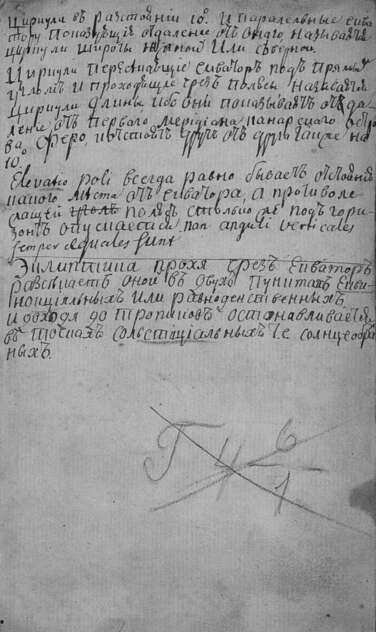 Циркули въ разстоянiи 10°. И паралельные еква
тору показующiя отдаленiе отъ онаго называются
циркули широты южной или северной.
Циркули пересекающiе екваторъ подъ прямымъ
угломъ и проходящiе чрезъ полюсы называются
циркули длины ибо они показываютъ отда
ленiе отъ перваго меридiана канарскаго остро
ва Феро, отъ другъ также на
10.
Elevatio Poli всегда равно бываетъ отстоянiю
нашего места отъ екватора, а противоле
жащей полюсъ столько же подъ гори
зонтъ опускается nam anguli verticales
semper aequales sunt.
Эклиптика прохъя чрезъ Екваторъ
разсекаетъ оной въ обухъ пунктахъ Екви
ноцiальныхъ или равноденственныхъ
и обходя до тропиковъ останавливается
въ точкахъ солстицiальныхъ т.е. солнцеобра
ныхъ
Г 4 6
1